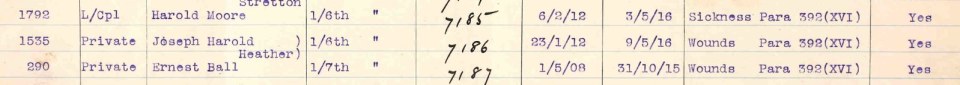 Stretton
1792 L/Cpl Harold Moore 1/6th " 7185 6/2/12 3/5/16 Sickness Para 392(XVI) Yes
1535 Private Joseph Harold ) 1/6th " 7186 23/1/12 9/5/16 Wounds Para 392(XVI) Yes
Heather)
290 Private Ernest Ball 1/7th " 7187 1/5/08 31/10/15 Wounds Para 392(XVI) Yes